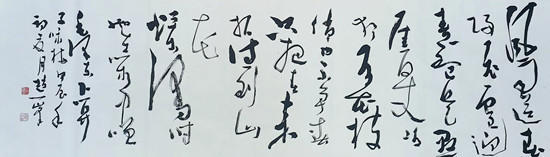 风雨送春
归飞雪迎
春到已是悬
崖百丈冰
犹有花枝
俏也不争春
只把春来
报待到山
花
烂漫时
她在丛中笑
毛泽东卜算子
咏梅
初夏月